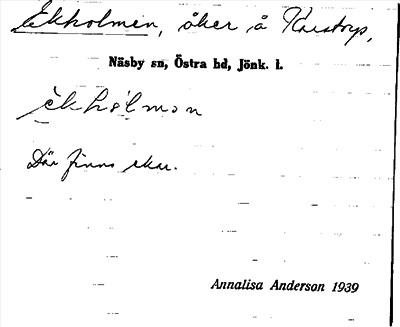 Ekholmen, åker å Karstorp,
Näsby sn, Östra hd, Jönk. l.
èkhòlmən
Där finns ekar.
Annalisa Anderson 1939